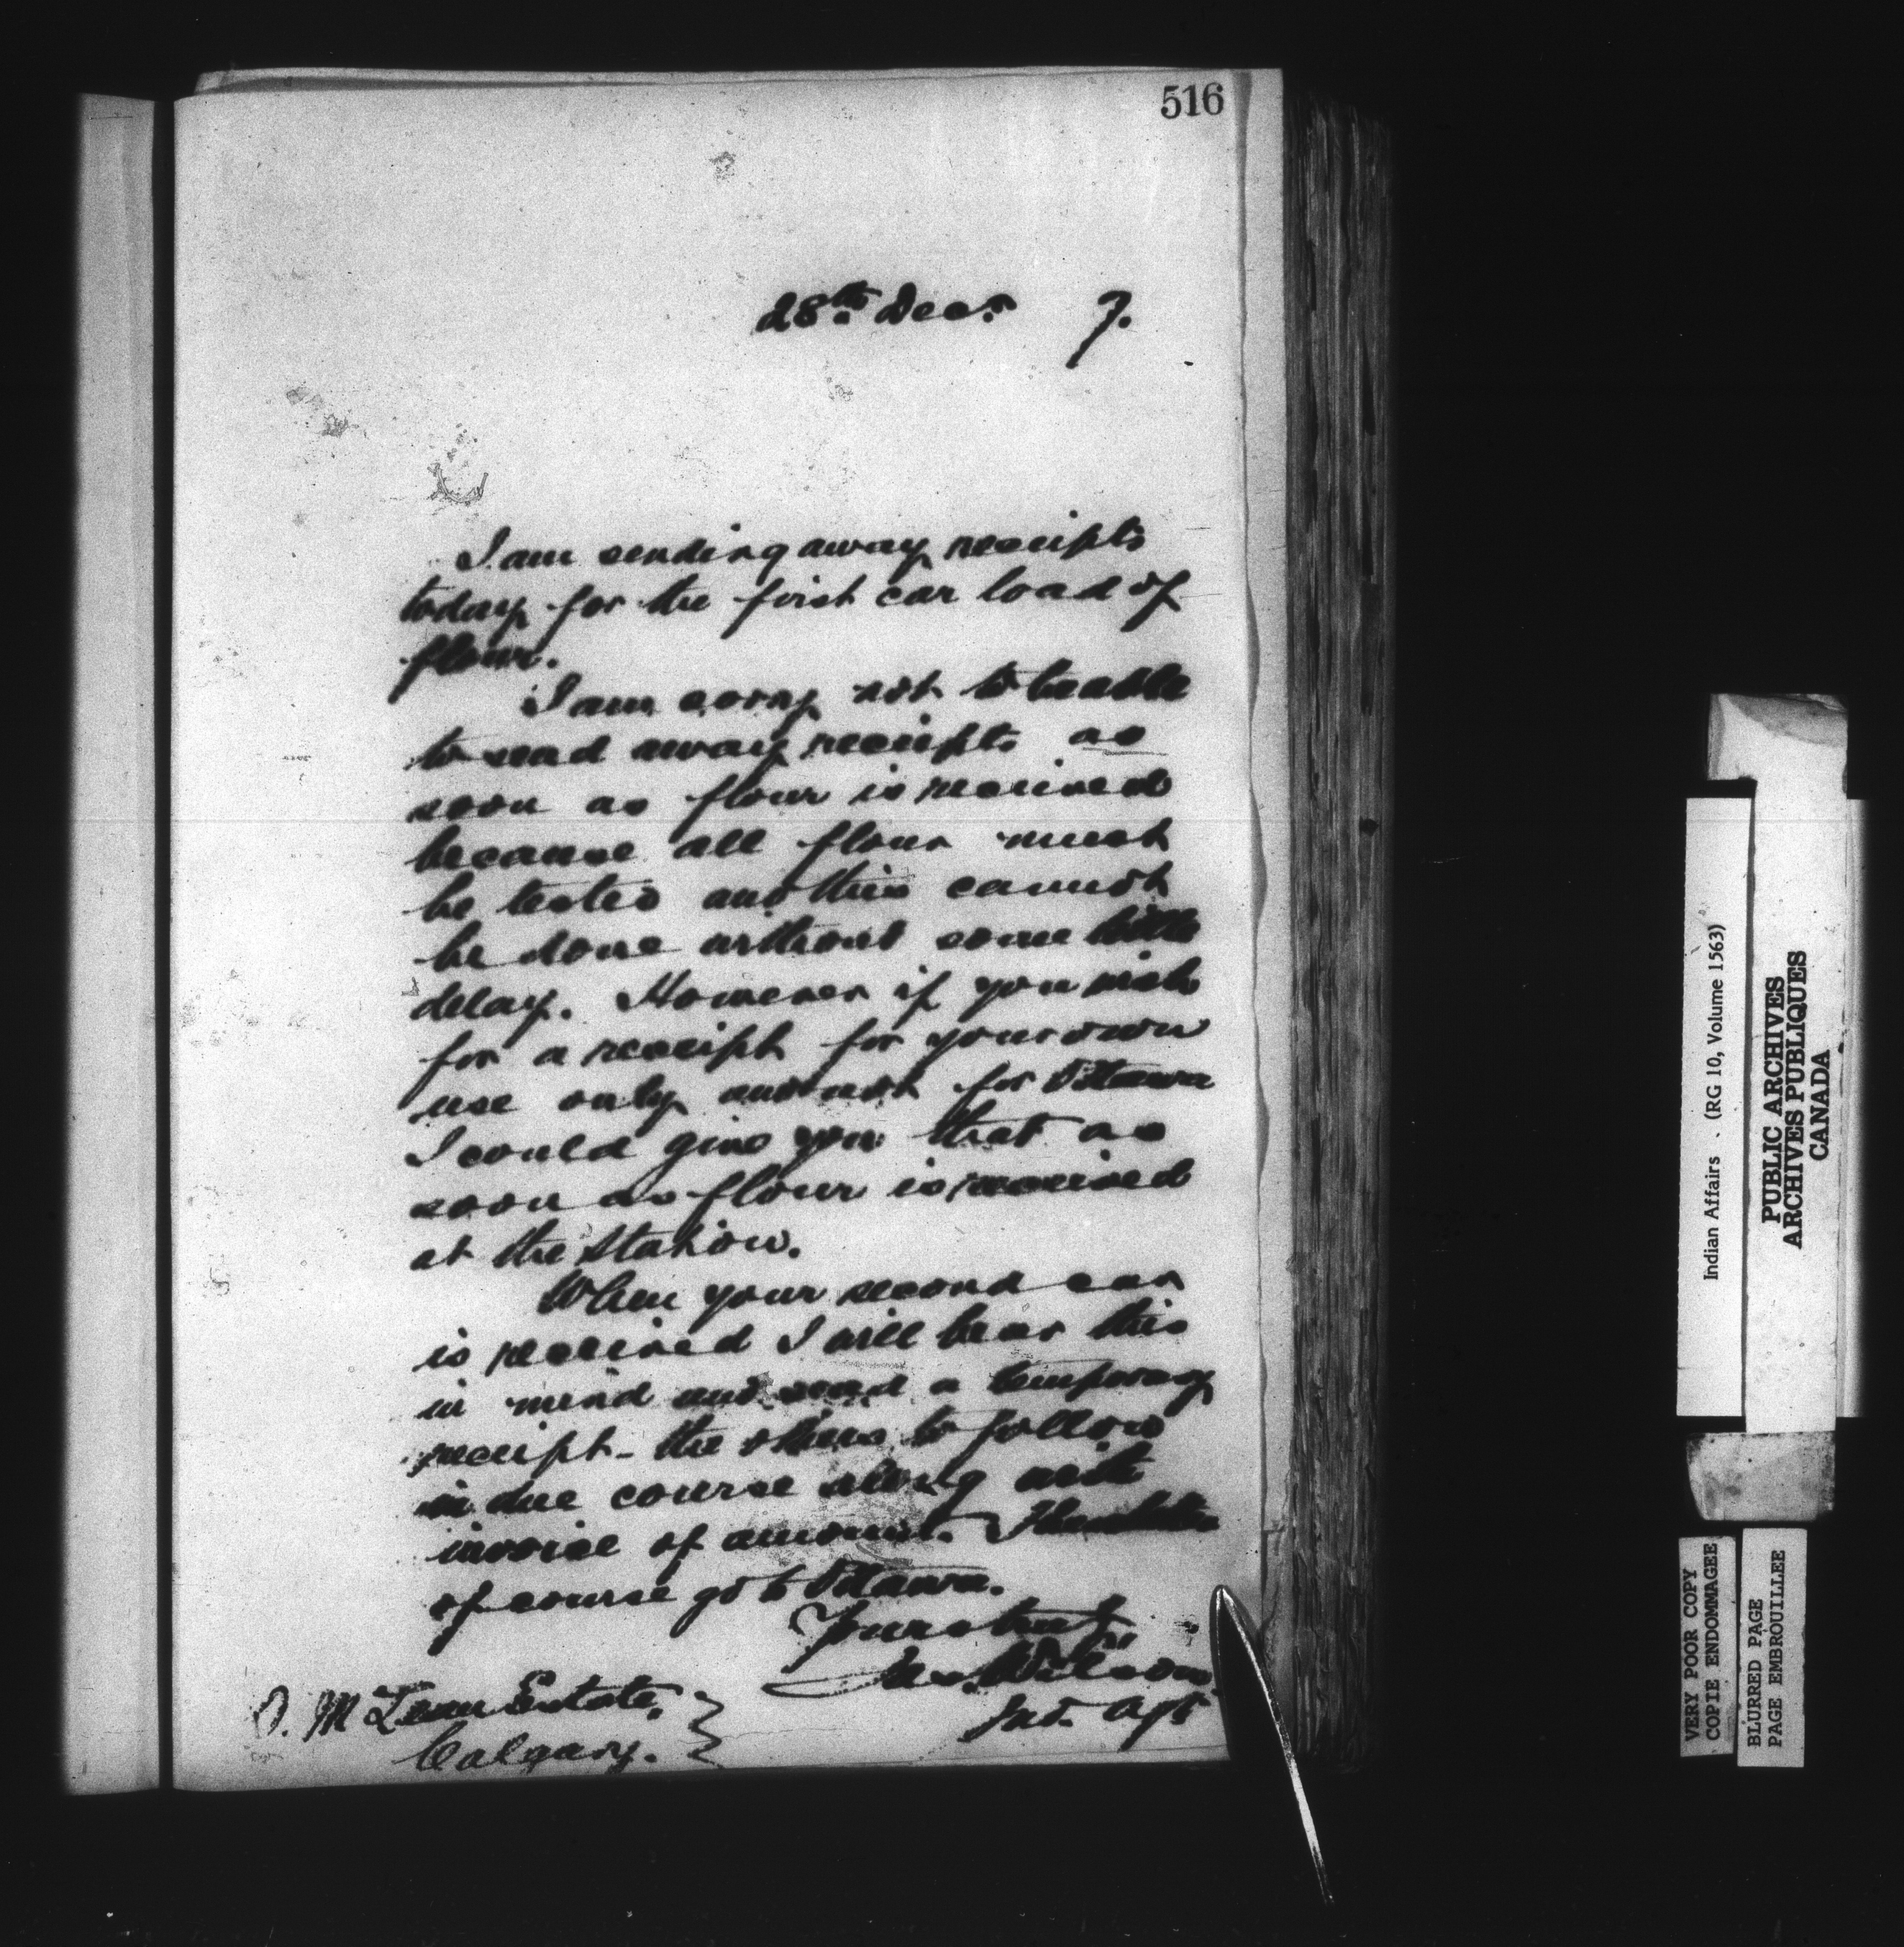 516
28th Decr 7.
I am sending away receipts
today for the first car load of
flour.
I am sorry not to be able
to send away receipts as
soon as flour is received
because all flour must
be tested and this cannot
be done without some little
delay. However if you wish
for a receipt for your own
use only and not for Ottawa
I could give you that as
soon as flour is received
at the station.
When your second car
is received I will bear this
in mind and send a temporary
receipt - the others to follow
in due course along with
invoice of amount.
of course go to Ottawa.
Yours truly
Wilson
Ind. Agt
D. McLean Estate,
Calgary.
Indian Affairs . (RG 10, Volume 1563)
PUBLIC ARCHIVES
ARCHIVES PUBLIQUES
CANADA
VERY POOR COPY
COPIE ENDOMMAGEE
BLURRED PAGE
PAGE EMBROUILLEE